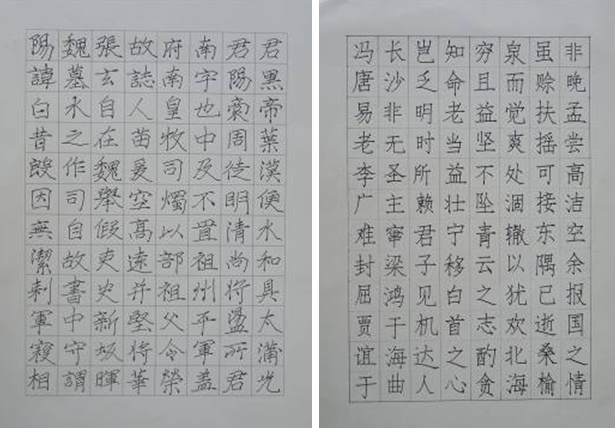 陽諱白昔殷因無潔刺軍寝相
魏墓水之作司自故書中守謂
張玄自在魏舉假吏史新坂暉
故誌人苗爰空高遠并堅將華
府南皇牧司燭以部祖父令榮
南字也中及不置祖州平軍蓋
君陽氣周徒明清尚將盪所君
君黑帝葉漢便水和具太蒲光
冯唐易老李广难封屈贾谊于
长沙非无圣主窜梁鸿于海曲
岂乏明时所赖君子见机达人
知命老当益壮宁移白首之心
穷且益坚不坠青云之志酌贪
泉而觉爽处涸辙以犹欢北海
虽赊扶摇可接东隅已逝桑榆
非晚孟尝高洁空余报国之情